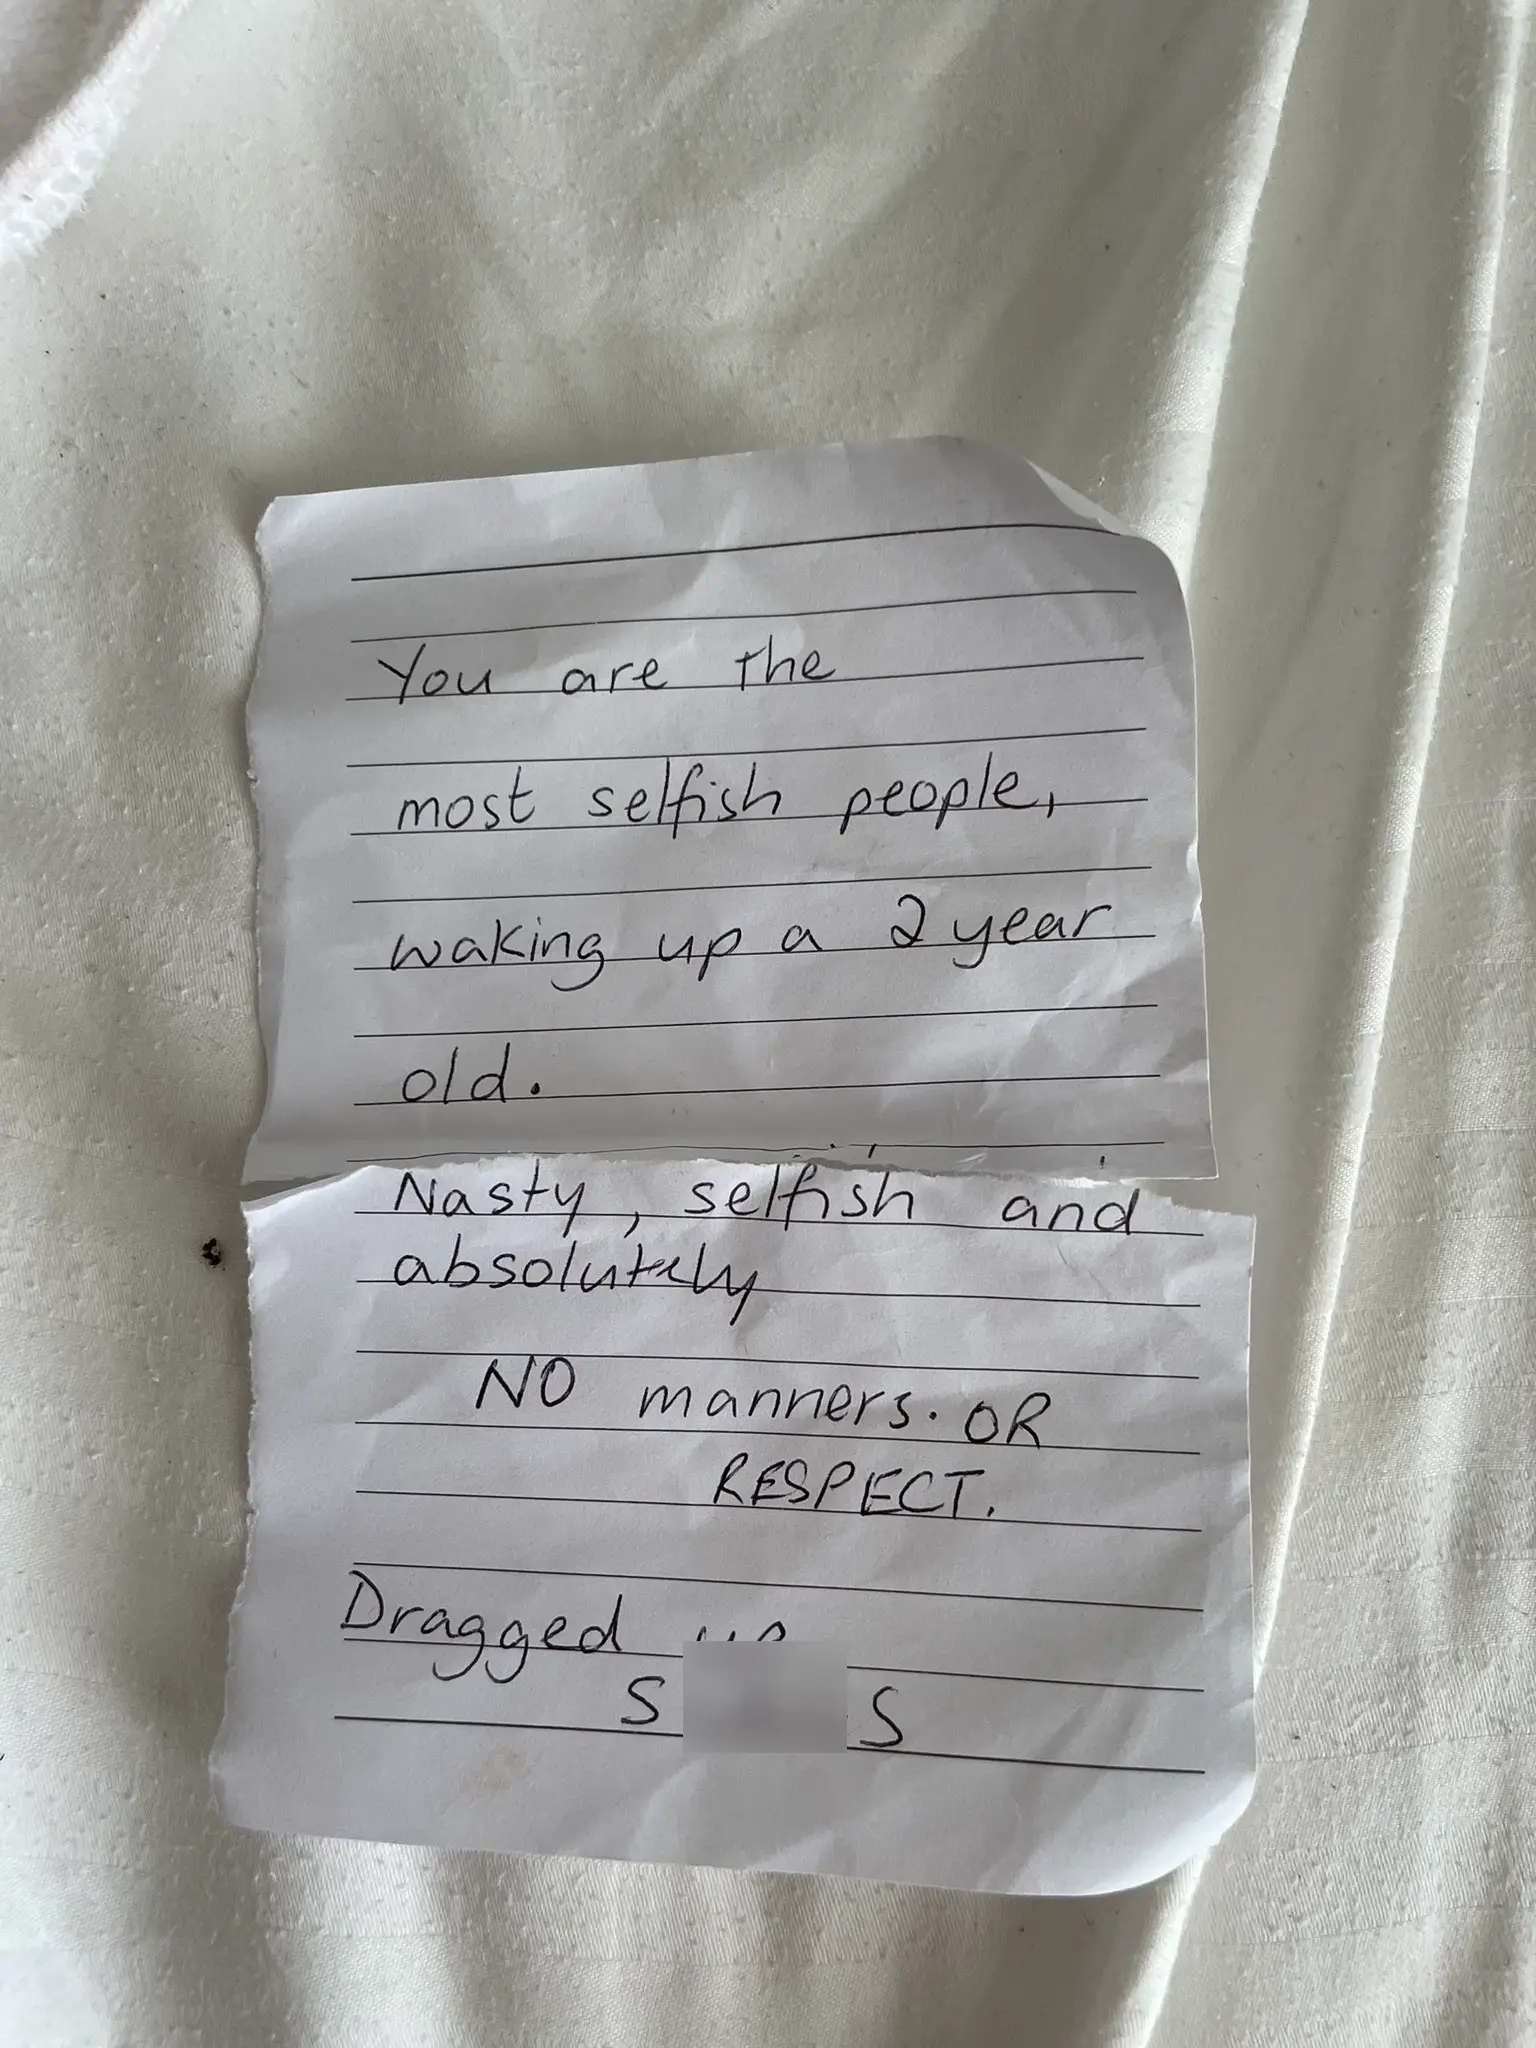 You are the
most selfish people,
waking up a 2 year
old.
Nasty, selfish and
absolutely
NO manners. OR
RESPECT.
Dragged up
S S